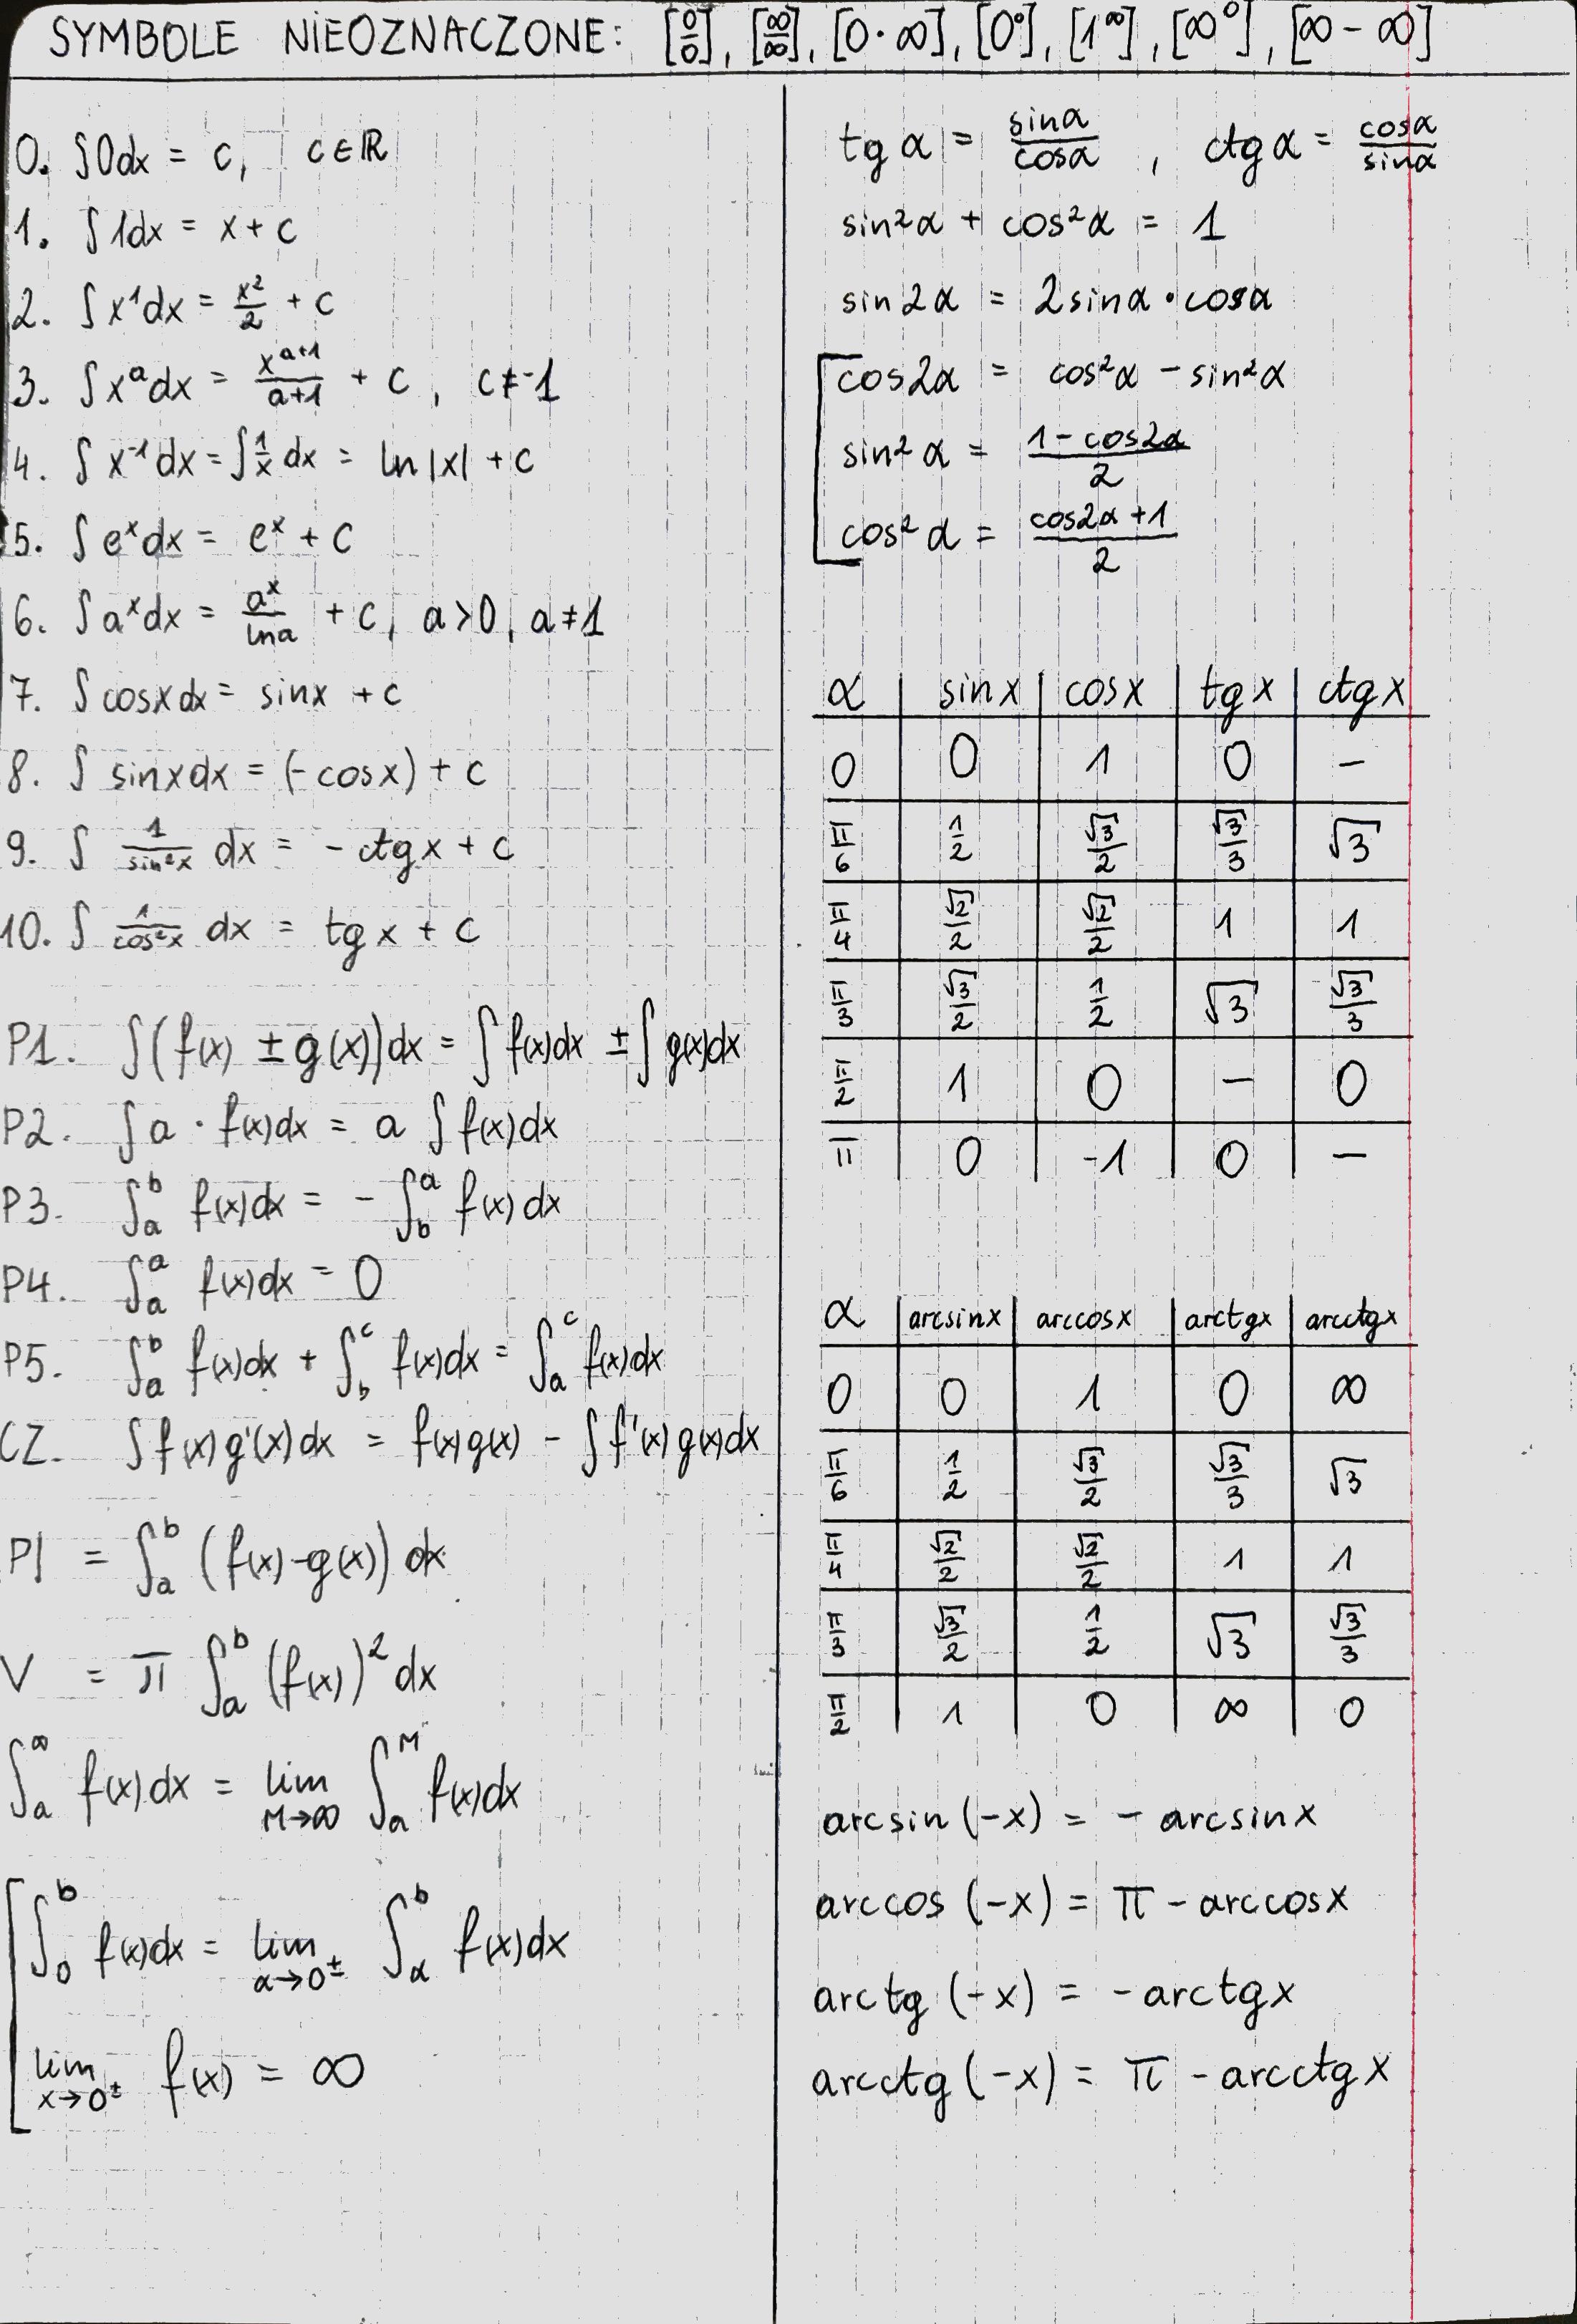 SYMBOLE NIEOZNACZONE: [0/0], [∞/∞], [0·∞], [0⁰], [1^∞], [∞⁰], [∞-∞]
0. ∫0dx = c, c∈ℝ
1. ∫1dx = x+c
2. ∫x¹dx = x²/2 + c
3. ∫xᵃdx = x^(a+1)/(a+1) + c, c≠-1
4. ∫x⁻¹dx = ∫1/x dx = ln|x| + c
5. ∫eˣdx = eˣ + c
6. ∫aˣdx = aˣ/lna + c, a>0, a≠1
7. ∫cosxdx = sinx + c
8. ∫sinxdx = (-cosx) + c
9. ∫ 1/sin²x dx = -ctgx + c
10. ∫ 1/cos²x dx = tgx + c
P1. ∫(f(x) ± g(x))dx = ∫f(x)dx ± ∫g(x)dx
P2. ∫a · f(x)dx = a ∫f(x)dx
P3. ∫_a^b f(x)dx = - ∫_b^a f(x)dx
P4. ∫_a^a f(x)dx = 0
P5. ∫_a^b f(x)dx + ∫_b^c f(x)dx = ∫_a^c f(x)dx
CZ. ∫f(x)g'(x)dx = f(x)g(x) - ∫f'(x)g(x)dx
P| = ∫_a^b (f(x)-g(x))dx
V = π ∫_a^b (f(x))² dx
∫_a^∞ f(x)dx = lim_{M→∞} ∫_a^M f(x)dx
∫_0^b f(x)dx = lim_{α→0±} ∫_α^b f(x)dx
lim_{x→0±} f(x) = ∞
tgα = sinα/cosα, ctgα = cosα/sinα
sin²α + cos²α = 1
sin2α = 2sinα·cosα
cos2α = cos²α - sin²α
sin²α = (1-cos2α)/2
cos²α = (cos2α+1)/2
α sinx cosx tgx ctgx
0 0 1 0 -
π/6 1/2 √3/2 √3/3 √3
π/4 √2/2 √2/2 1 1
π/3 √3/2 1/2 √3 √3/3
π/2 1 0 - 0
π 0 -1 0 -
α arcsinx arccosx arctgx arcctgx
0 0 1 0 ∞
π/6 1/2 √3/2 √3/3 √3
π/4 √2/2 √2/2 1 1
π/3 √3/2 1/2 √3 √3/3
π/2 1 0 ∞ 0
arcsin(-x) = - arcsinx
arccos(-x) = π - arccosx
arctg(-x) = -arctgx
arcctg(-x) = π - arcctgx